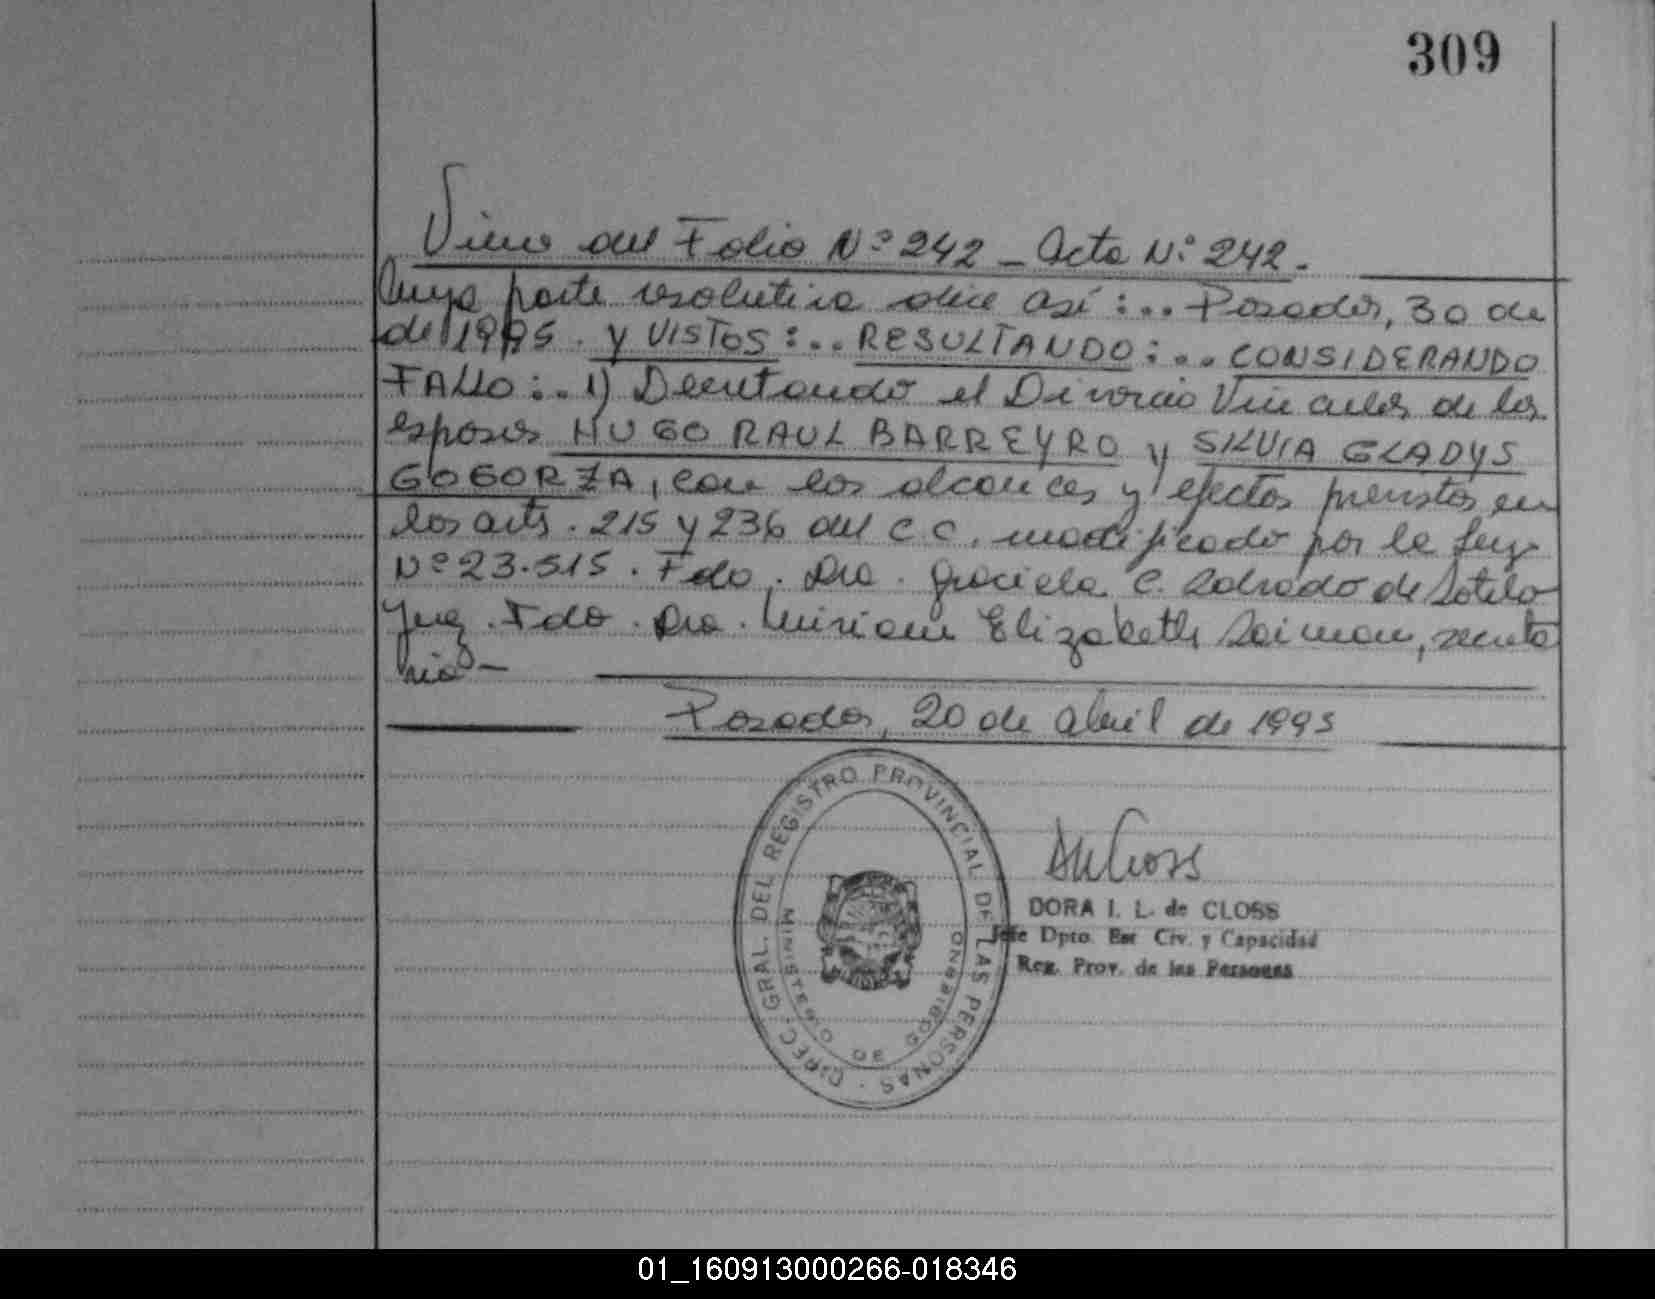 309
Viene del Folio Nº 242 - Acta Nº 242.-
Cuya parte resolutiva dice así:.. Posadas, 30 de
de 1995. Y VISTOS:.. RESULTANDO:.. CONSIDERANDO
FALLO:.. 1) Decretando el Divorcio Vincular de los
esposos HUGO RAUL BARREYRO y SILVIA GLADYS
GOGORZA, con los alcances y efectos previstos en
los arts. 215 y 236 del C C. modificado por la Ley
Nº 23.515. Fdo. Dra. Graciela C. Salvado de Sotelo
Juez. Fdo. Dra. Miriam Elizabeth, secreta
ria -
Posadas, 20 de abril de 1995
DIREC. GRAL. DEL REGISTRO PROVINCIAL DE LAS PERSONAS
MINISTERIO DE GOBIERNO
DORA I. L. de CLOSS
Jefe Dpto. Est Civ. y Capacidad
Reg. Prov. de las Personas
01_160913000266-018346